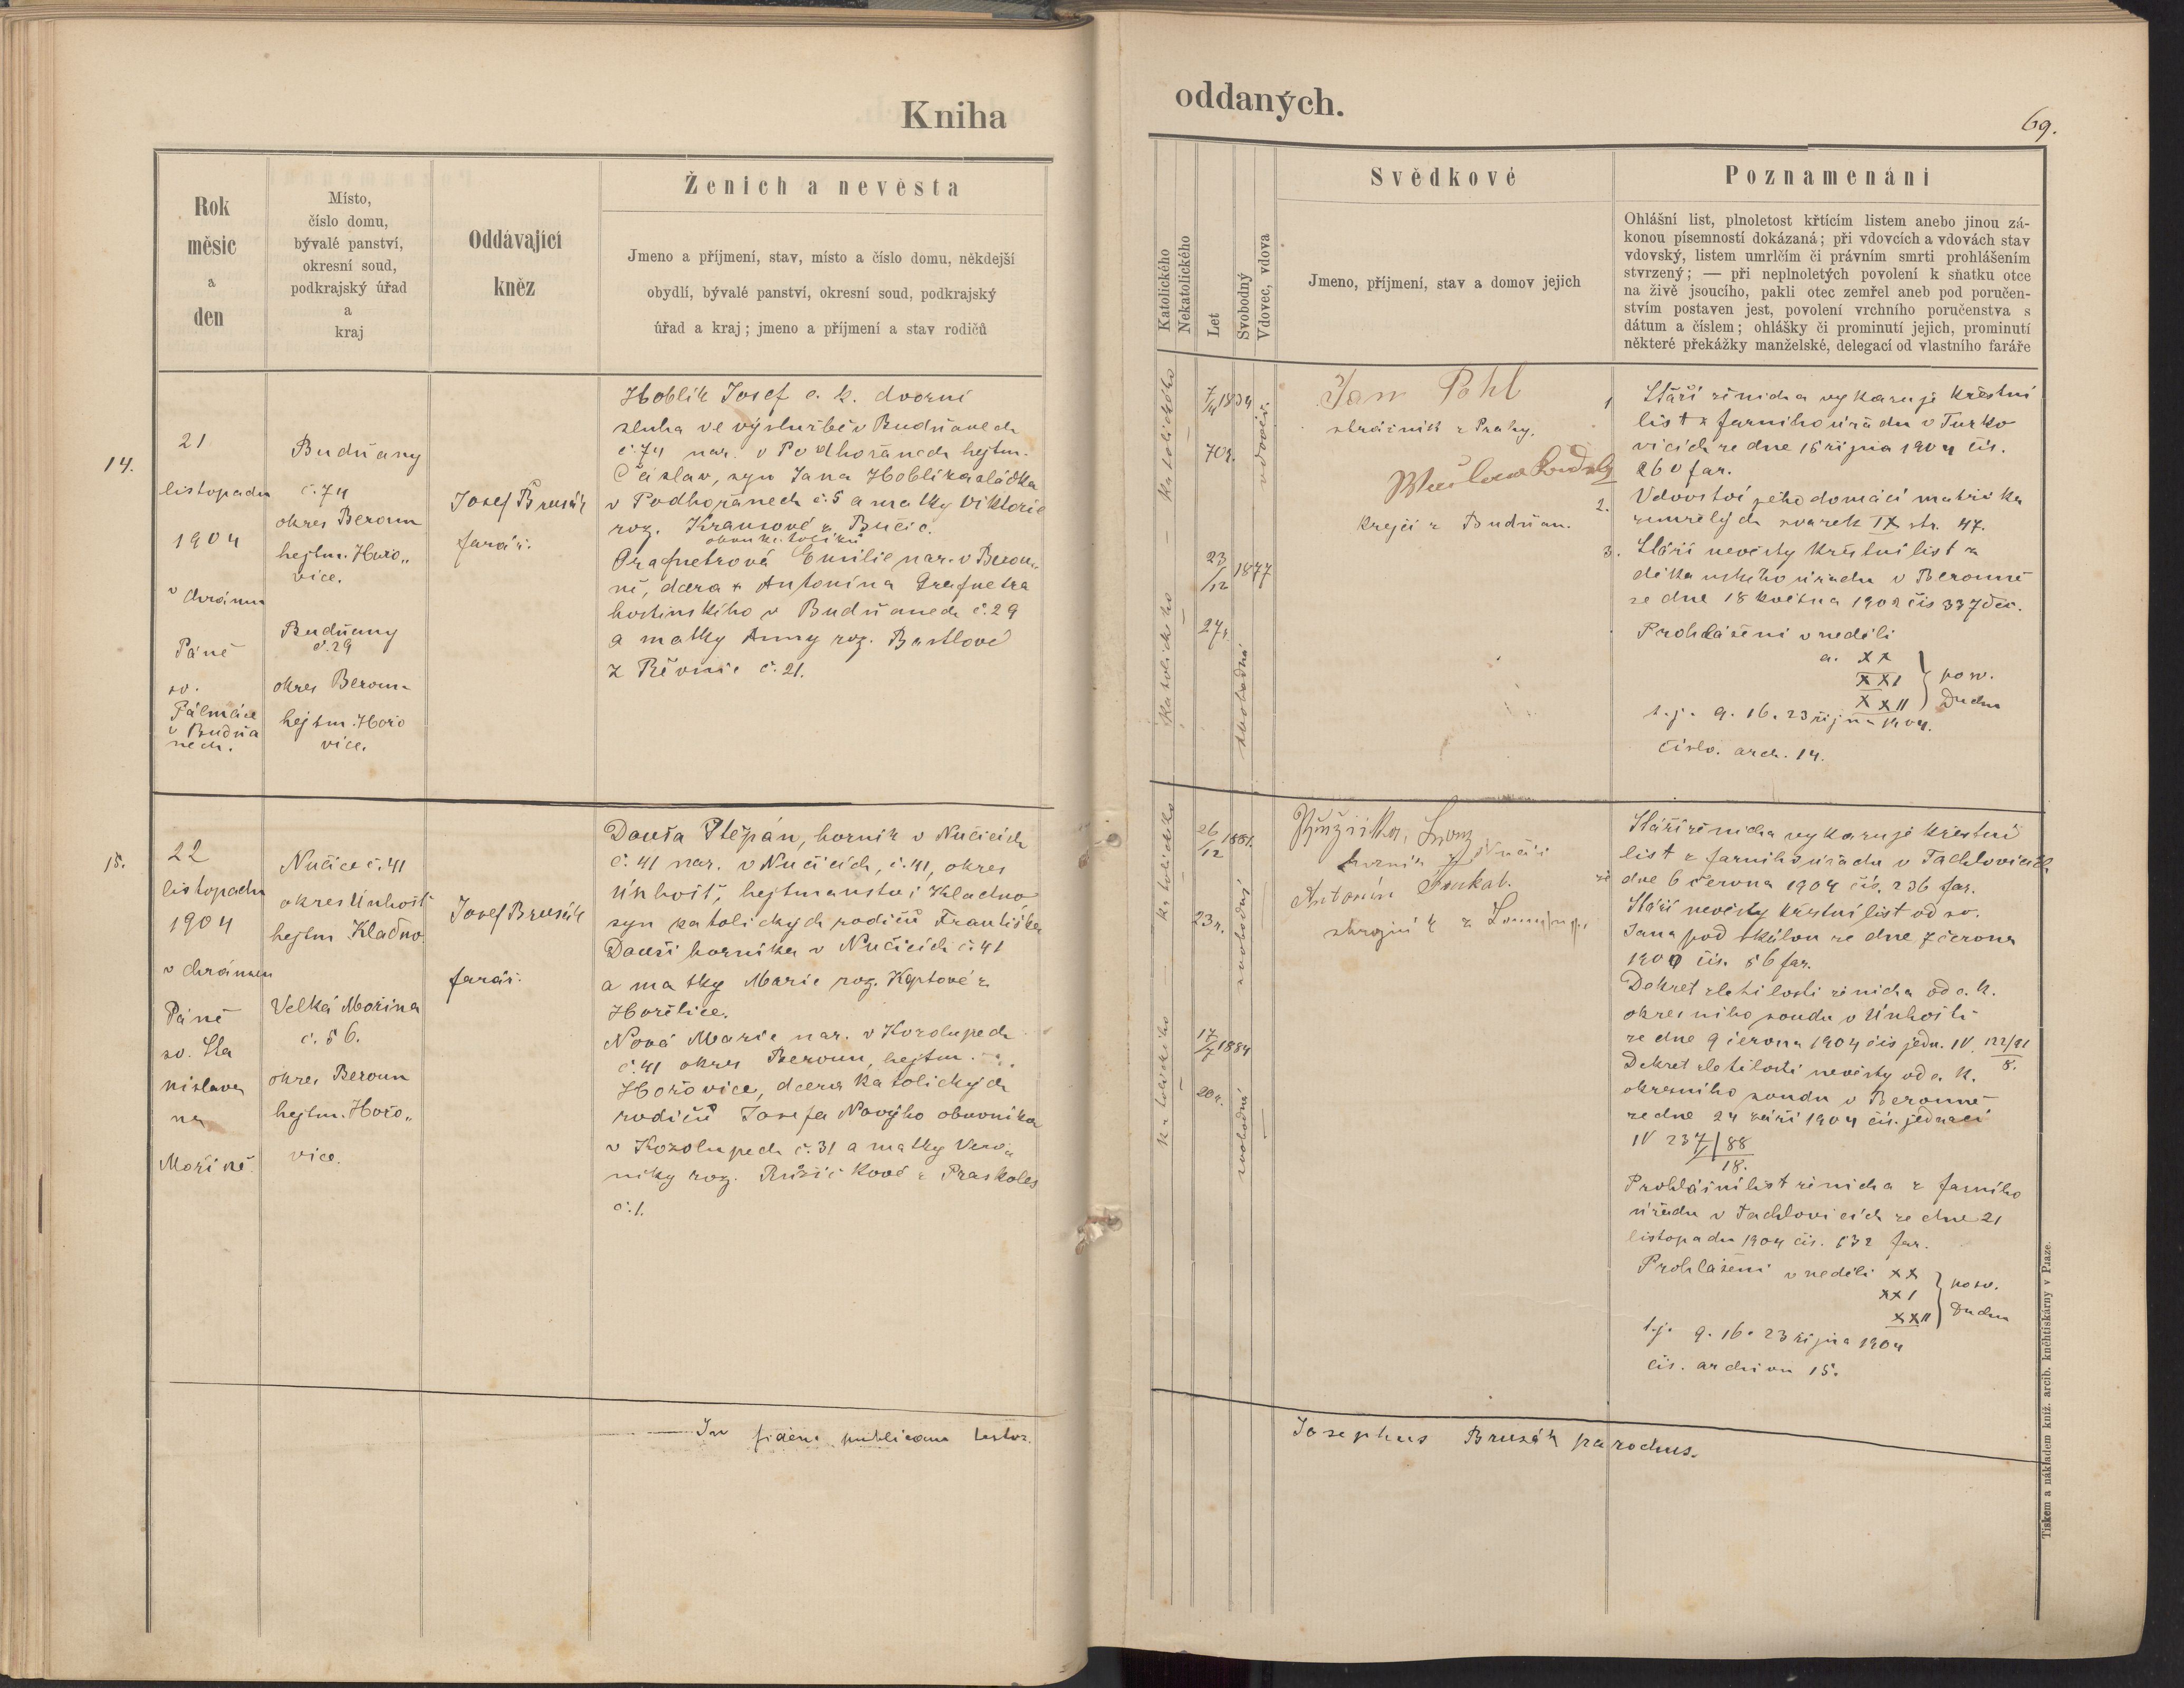 Kniha
oddaných.
69.
Rok
měsíc
a
den
Místo,
číslo domu,
bývalé panství,
okresní soud,
podkrajský úřad
a
kraj
Oddávající
kněz
Ženich a nevěsta
Jmeno a příjmení, stav, místo a číslo domu, někdejší
obydlí, bývalé panství, okresní soud, podkrajský
úřad a kraj; jmeno a příjmení a stav rodičů
Katolického
Nekatolického
Let
Svobodný
Vdovec, vdova
Svědkové
Jmeno, příjmení, stav a domov jejich
Poznamenání
Ohlášní list, plnoletost křtícím listem anebo jinou zá-
konou písemností dokázaná; při vdovcích a vdovách stav
vdovský, listem umrlčím či právním smrti prohlášením
stvrzený; — při neplnoletých povolení k sňatku otce
na živě jsoucího, pakli otec zemřel aneb pod poručen-
stvím postaven jest, povolení vrchního poručenstva s
dátum a číslem; ohlášky či prominutí jejich, prominutí
některé překážky manželské, delegací od vlastního faráře
14.
21
listopadu
1904
v chrámu
Páně
sv.
Palmácie
v Budňa
nech.
Budňany
č. 74
okres Beroun
hejtm. Hořo„
vice.
Budňany
č. 29
okres Beroun
hejtm. Hořo
vice.
Josef Brusák
farář.
Hoblík Josef c. k. dvorní
sluha ve výslužbě v Budňanech
č. 74 nar. v Podhořanech hejtm.
Čáslav, syn Jana Hoblíka sládka
v Podhořanech č. 5 a matky Viktorie
roz. Krausové z Bučic.
obou katolíků
Grafnetrová Emilie nar. v Berou„
ně, dcera + Antonína Grafnetra
hostinského v Budňanech č. 29
a matky Anny roz. Bartlové
z Řevnic č. 21.
katolického — katolického
7/4 1834
70 r.
23/12 1877
27 r.
vdovec.
svobodná
Jan Pohl
strážník z Prahy.
krejčí z Budňan.
1. Stáří ženicha vykazuje křestní
list z farního úřadu v Turko
vicích ze dne 15 října 1904 čís.
260 far.
2. Vdovství jeho domácí matrika
zemřelých svazek IX str. 47.
3. Stáří nevěsty křestní list z
děkanského úřadu v Berouně
ze dne 18 května 1902 čís 337 děk.
Prohlášení v neděli
a. XX
XXI
XXII
po sv.
Duchu
t. j. 9. 16. 23 října 1904.
číslo. arch. 14.
15.
22
listopadu
1904
v chrámu
Páně
sv. Sta
nislava
na
Mořině.
Nučice č. 41
okres Únhošť
hejtm Kladno.
Velká Mořina
č. 56.
okres Beroun
hejtm. Hořo„
vice.
Josef Brusák
farář.
Douša Štěpán, horník v Nučicích
č. 41 nar. v Nučicích, č. 41, okres
Únhošť, hejtmanství Kladno
syn katolických rodičů Františka
Douši horníka v Nučicích č. 41
a matky Marie roz. Kaptové z
Hořelice.
Nová Marie nar. v Kozolupech
č. 41 okres Beroun, hejtm.
Hořovice, dcera katolických
rodičů Josefa Nového obuvníka
v Kozolupech č. 31 a matky Vero
niky roz. Růžičkové z Praskoles
č. 1.
katolického — katolického
26/12 1881.
23 r.
17/7 1884
20 r.
svobodný
svobodná
Růžička,
horník z Nučic
Antonín
strojník z
Stáří ženicha vykazuje křestní
list z farního úřadu v Tachlovicích
ze dne 6 června 1904 čís. 236 far.
Stáří nevěsty křestní list od sv.
Jana pod skálou ze dne 7 června
1900 čís. 56 far.
Dekret zletilosti ženicha od c. k.
okresního soudu v Únhošti
ze dne 9 června 1904 čís jedn. IV. 122/81
8.
Dekret zletilosti nevěsty od c. k.
okresního soudu v Berouně
ze dne 24 září 1904 čís. jednací
IV 237/88
18.
Prohlášní list ženicha z farního
úřadu v Tachlovicích ze dne 21
listopadu 1904 čís. 532 far.
Prohlášení v neděli XX
XXI
XXII
po sv.
Duchu
t. j. 9. 16. 23 října 1904
čís. archivu 15.
In fidem publicam testor.
Josephus Brusák parochus.
Tiskem a nákladem kníž. arcib. kněhtiskárny v Praze.